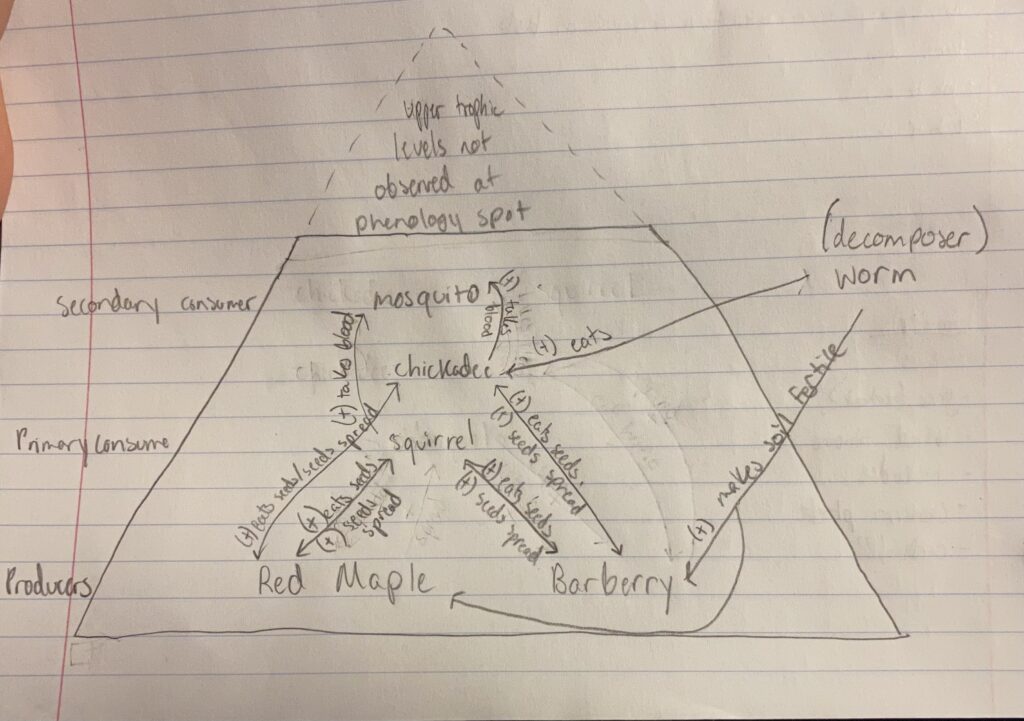 upper trophic
levels not
observed at
phenology spot
(decomposer)
worm
secondary consumer
mosquito
(+) takes
blood
(+) takes blood
(+) eats
chickadee
Primary consume
squirrel
(+) eats seeds/seeds spread
(+) eats seeds
(+) seeds
spread
(+) eats seeds
(+) seeds spread
(+) eats seeds
(+) seeds spread
(+) makes soil fertile
Producers
Red Maple
Barberry